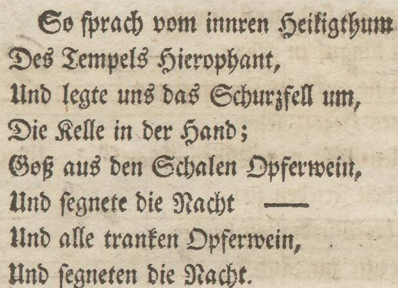 So sprach vom innren Heiligthum
Des Tempels Hierophant,
Und legte uns das Schurzfell um,
Die Kelle in der Hand;
Goß aus den Schalen Opferwein,
Und segnete die Nacht —
Und alle tranken Opferwein,
Und segneten die Nacht.